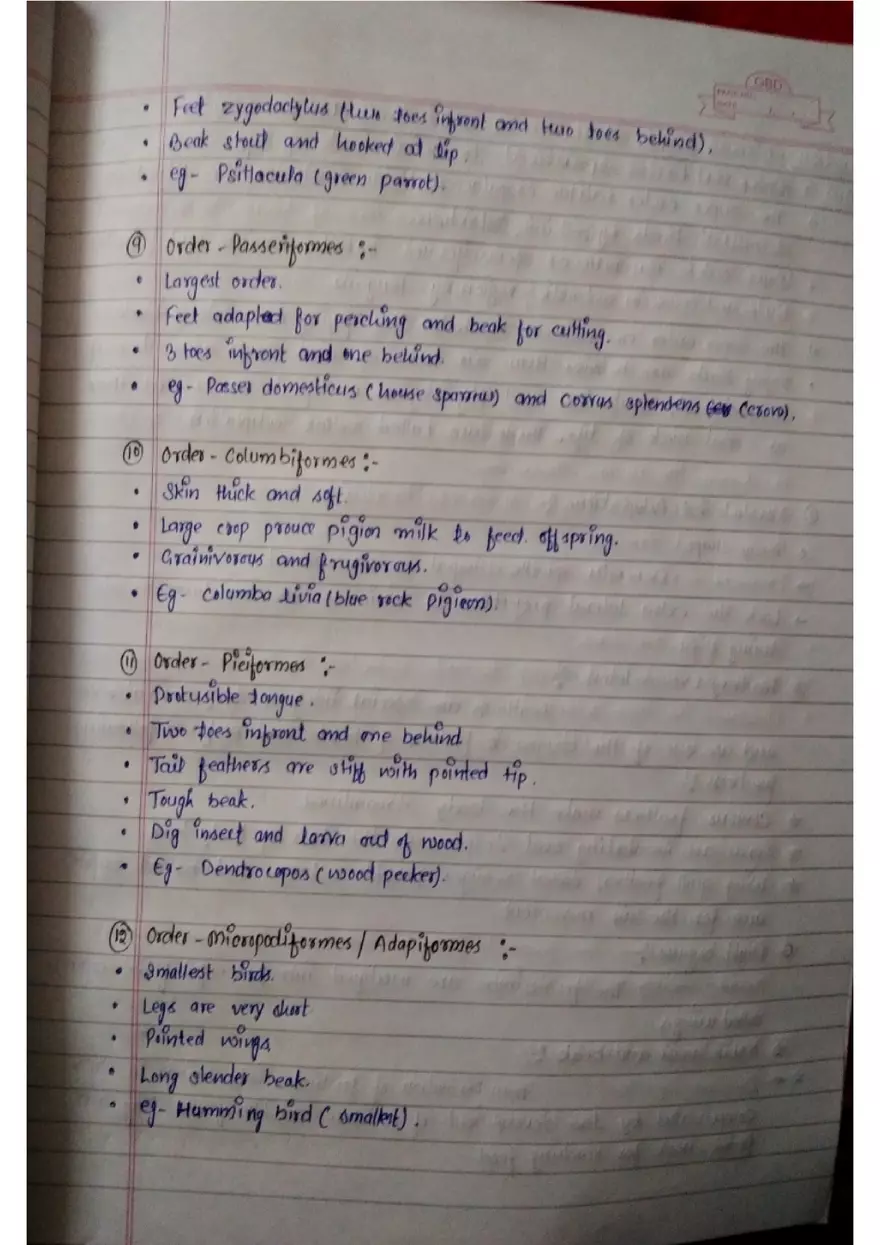 GBD
• Feet zygodactylus (two toes infront and two toes behind),
• Beak stout and hooked at tip.
• eg- Psittacula (green parrot).
⑨ Order - Passeriformes :-
• Largest order.
• Feet adapted for perching and beak for cutting.
• 3 toes infront and one behind.
• eg- Passer domesticus (house sparrow) and corvus splendens (crow).
⑩ Order - Columbiformes :-
• Skin thick and soft.
• Large crop prouce pigion milk to feed. offspring.
• Grainivorous and frugivorous.
• Eg- Columba livia (blue rock pigieon).
⑪ Order - Piciformes :-
• Protusible tongue.
• Two toes infront and one behind.
• Tail feathers are stiff with pointed tip.
• Tough beak.
• Dig insect and larva out of wood.
• Eg- Dendrocopos (wood pecker).
⑫ Order - Micropodiformes / Adapiformes :-
• Smallest birds.
• Legs are very short
• Pointed wings
• Long slender beak.
• eg- Humming bird (smallest).